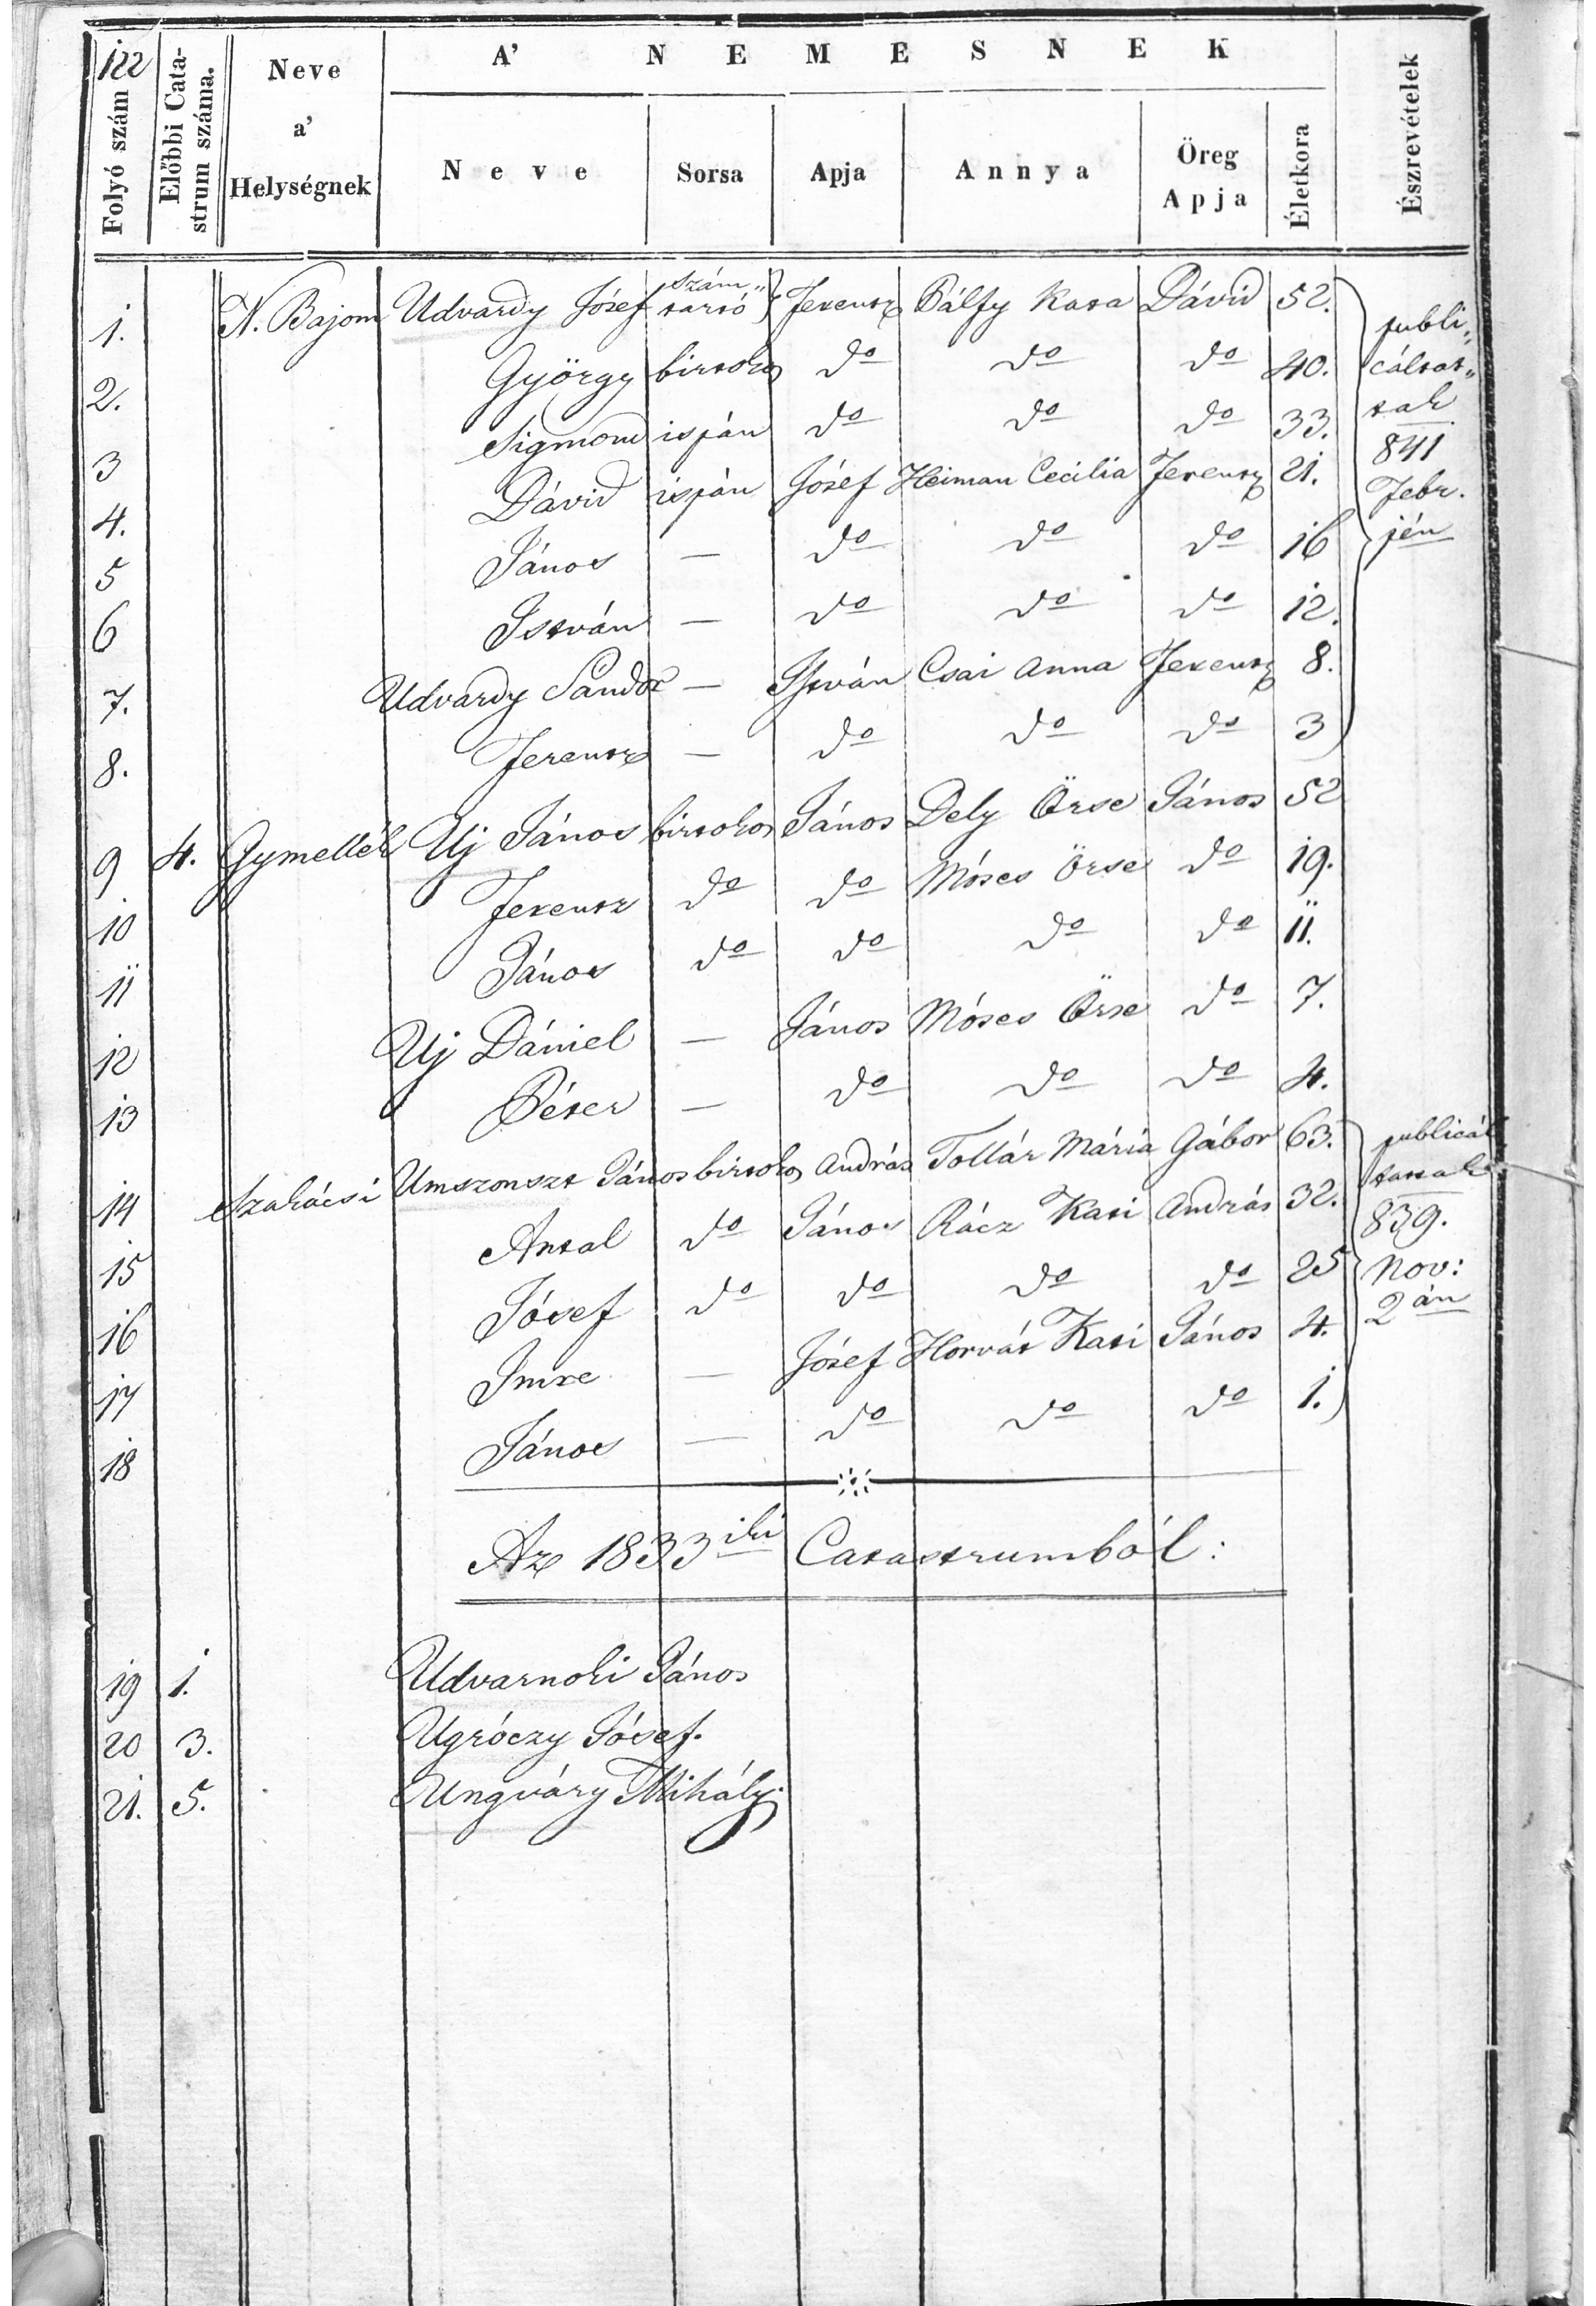 122
Folyó szám
Előbbi Cata-
strum száma.
Neve
a'
Helységnek
A' NEMESNEK
Neve
Sorsa
Apja
Annya
Öreg
Apja
Életkora
Észrevételek
1. N. Bajom Udvardy Jósef Szám„ tartó Ferentz Pálfy Kata Dávid 52.
2. György birtokos do do do 40.
3 Sigmond ispán do do do 33.
4. Dávid ispán Jósef Heiman Cecilia Ferentz 21.
5 János — do do do 16
6 István — do do do 12.
7. Udvardy Sándor — István Csai Anna Ferentz 8.
8. Ferentz — do do do 3
publi„
cáltat„
tak
841
Febr.
jén
9 4. Gymellék Uj János birtokos János Dely Örse János 52
10 Ferentz do do Móses Örse do 19.
11 János do do do do 11.
12 Uj Dániel — János Móses Örse do 7.
13 Péter — do do do 4.
14 Szakácsi Umszonszt János birtokos András Tollár Mária Gábor 63.
15 Antal do János Rácz Kati András 32.
16 Jósef do do do do 25
17 Imre — Jósef Horvát Kati János 4.
18 János — do do do 1.
publicál
tattak
839.
Nov:
2án
Az 1833iki Catastrumból:
19 1. Udvarnoki János
20 3. Ugróczy Jósef.
21. 5. Ungváry Mihály.